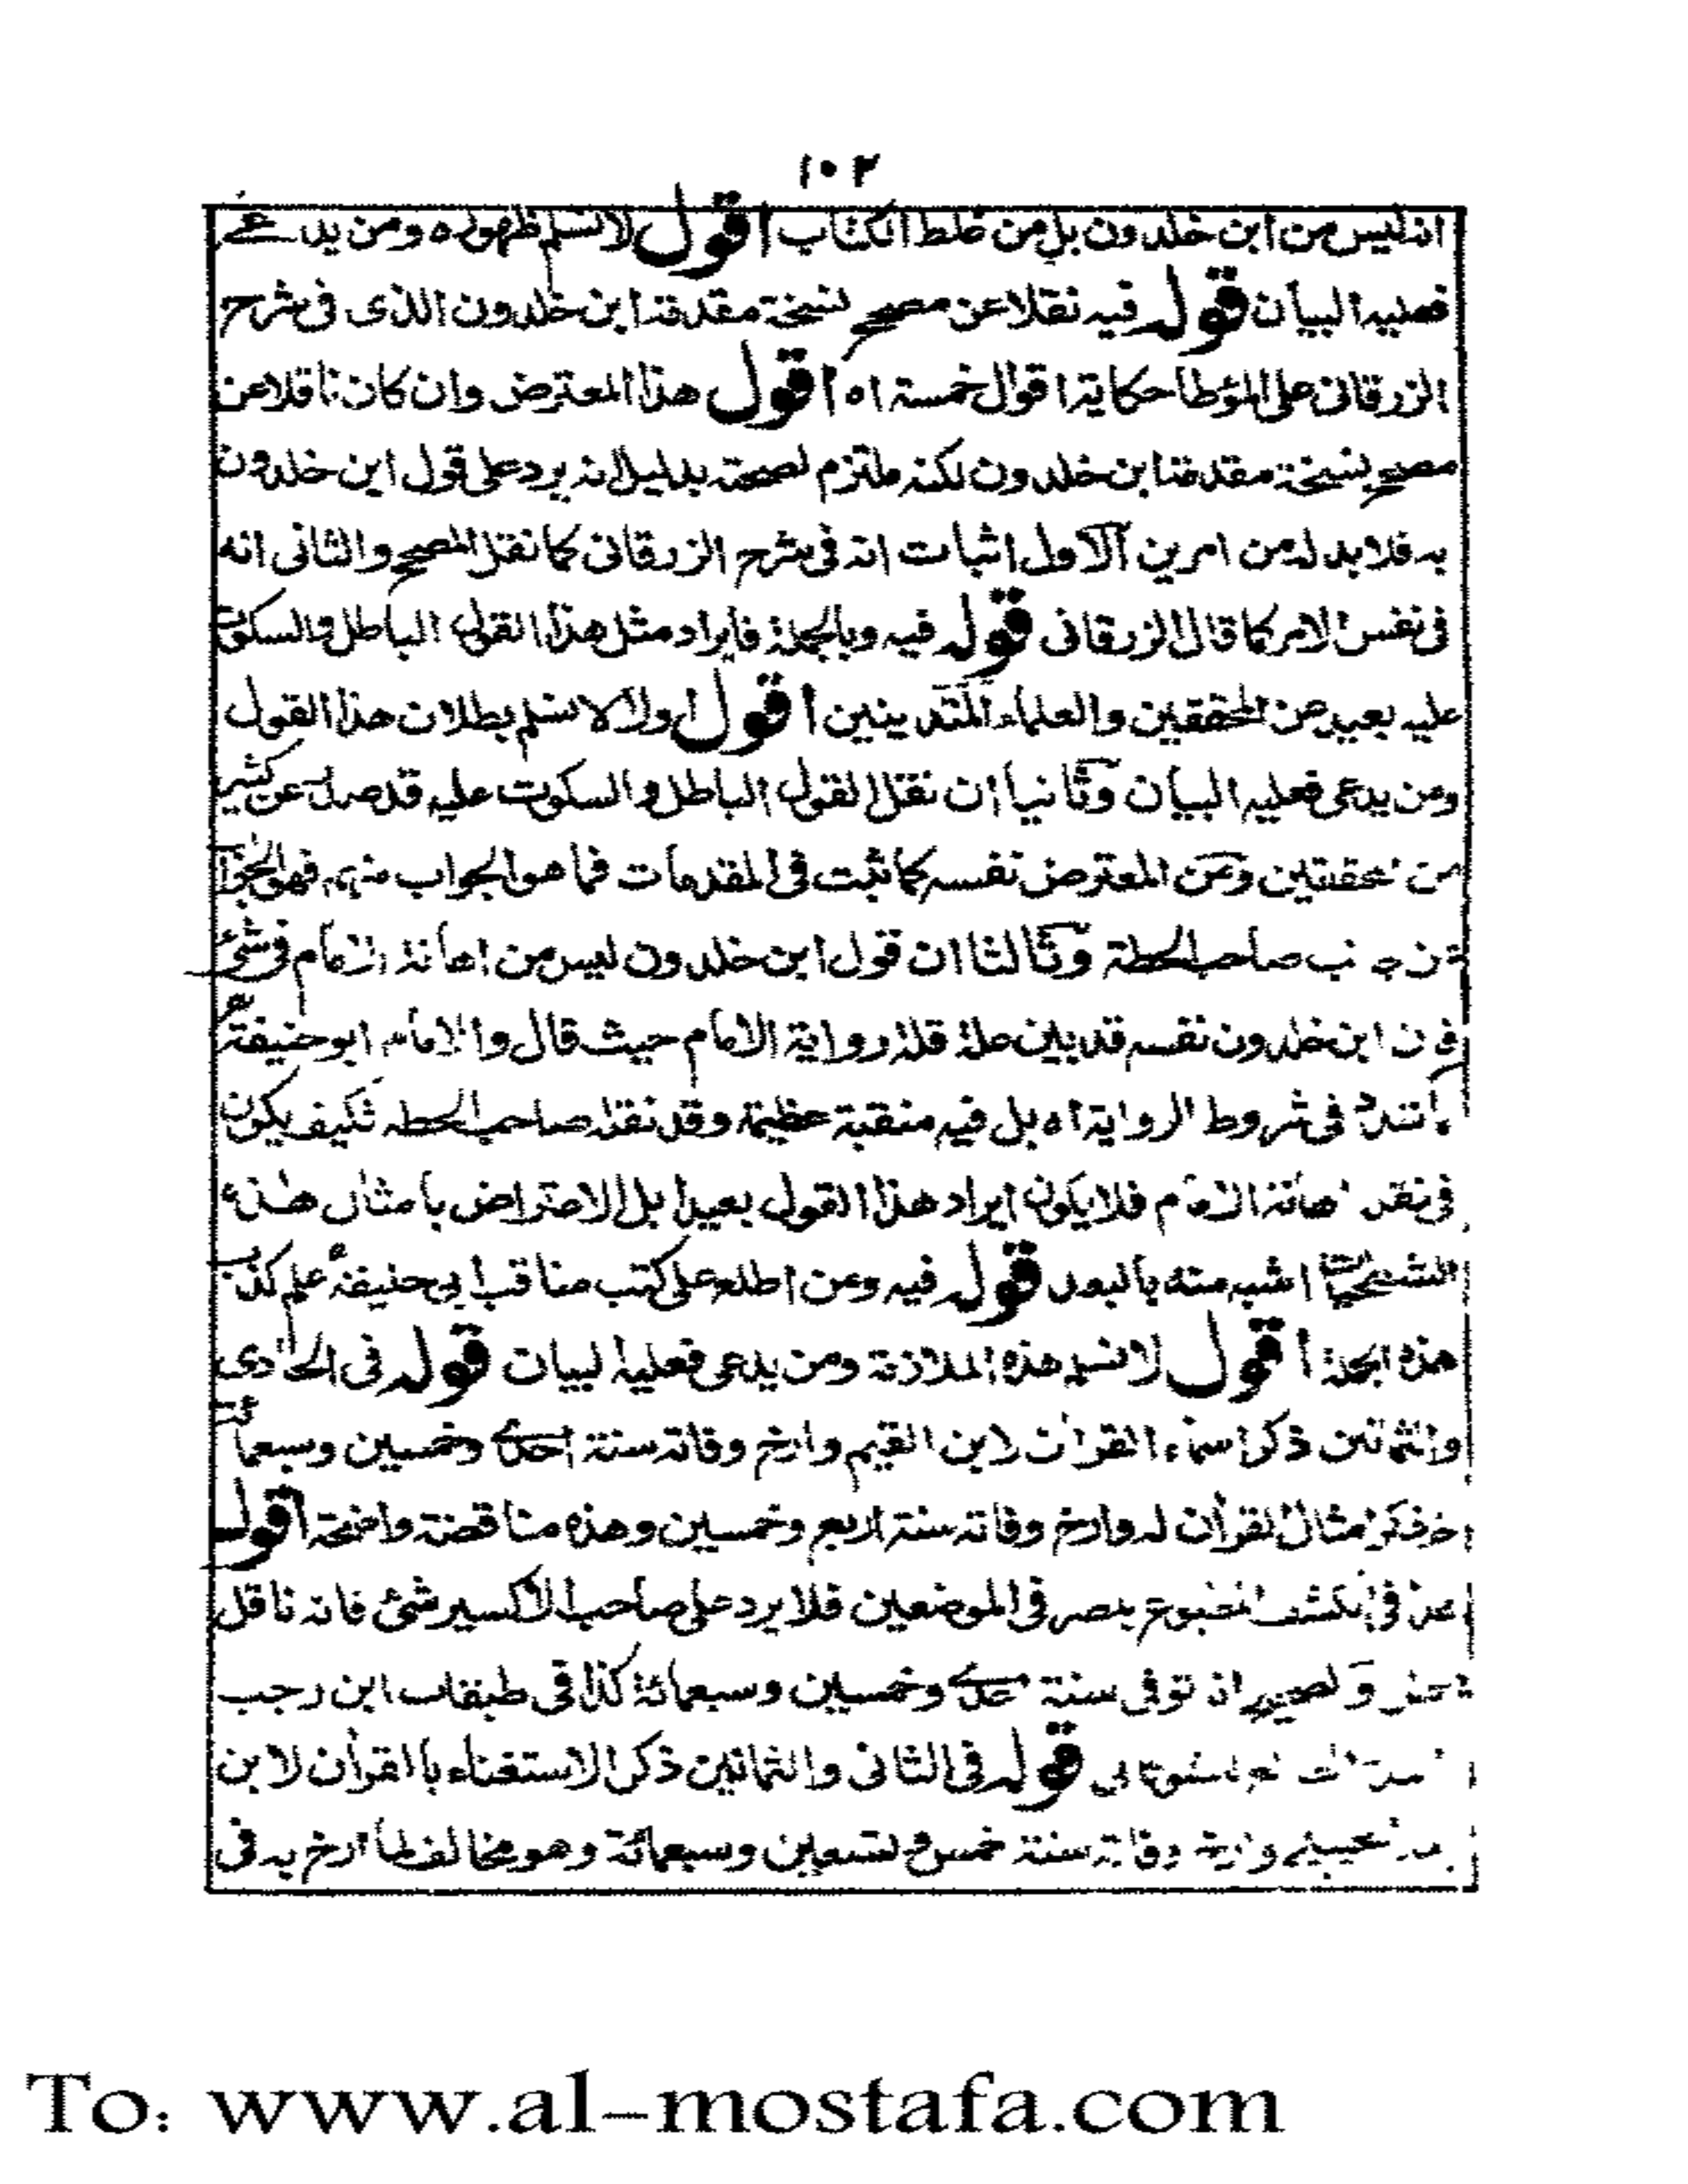 ١٠٢
انه ليس من ابن خلدون بل من غلط الكتاب اقول لا نسلم ظهوره ومن يدعى
فعليه البيان قوله فيه نقلا عن مصحح نسخة مقدمة ابن خلدون الذى فى شرح
الزرقانى على المؤطا حكاية اقوال خمسة اه اقول هذا المعترض وان كان ناقلا عن
مصحح نسخة مقدمة ابن خلدون لكنه ملتزم لصحته بدليل انه يرد على قول ابن خلدون
به فلا بد له من امرين الاول اثبات انه فى شرح الزرقانى كما نقل المصحح والثانى انه
فى نفس الامر كما قال الزرقانى قوله فيه وبالجملة فايراد مثل هذا القول الباطل والسكوت
عليه بعيد عن المحققين والعلماء المتدينين اقول اولا لا نسلم بطلان هذا القول
ومن يدعى فعليه البيان وثانيا ان نقل القول الباطل والسكوت عليه قد صدر عن كثير
من المحققين ومن المعترض نفسه كما ثبت فى المقدمات فما هو الجواب منهم فهو الجواب
من جانب صاحب الحطة وثالثا ان قول ابن خلدون ليس من اهانة الامام فى شئ
فان ابن خلدون نفسه قد بين علة قلة رواية الامام حيث قال والامام ابو حنيفة
شروط الرواية اه بل فيه منقبة عظيمة وقد نقله صاحب الحطه فكيف يكون
فى نقله اهانة الامام فلا يكون ايراد هذا القول بعيدا بل الاعتراض بامثال هذه
اشبه منه بالبعد قوله فيه ومن اطلع على كتب مناقب ابى حنيفة علم كذب
هذه الجملة اقول لا نسلم هذه الملازمة ومن يدعى فعليه البيان قوله فى الحادى
والثمانين ذكر اسماء القران لابن القيم وارخ وفاته سنة احدى وخمسين وسبعمائة
ثم ذكر امثال القرأن له وارخ وفاته سنة اربع وخمسين وهذه مناقضة واضحة اقول
هكذا فى الكشف المطبوع بمصر فى الموضعين فلا يرد على صاحب الاكسير شئ فانه ناقل
محض والصحيح انه توفى سنة احدى وخمسين وسبعمائة كذا فى طبقات ابن رجب
قوله فى الثانى والثمانين ذكر الاستغناء بالقرأن لابن
رجب الحنبلى وارخ وفاته سنة خمس وتسعين وسبعمائة وهو مخالف لما ارخ به فى
To: www.al-mostafa.com